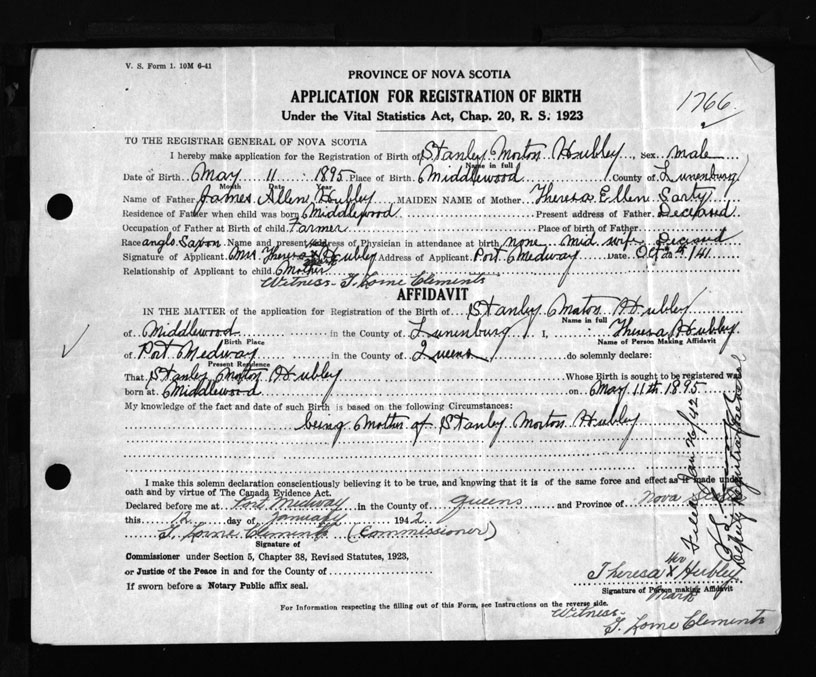 V. S. Form 1. 10M 6-41
PROVINCE OF NOVA SCOTIA
APPLICATION FOR REGISTRATION OF BIRTH
Under the Vital Statistics Act, Chap. 20, R. S. 1923
1766
TO THE REGISTRAR GENERAL OF NOVA SCOTIA
I hereby make application for the Registration of Birth of Stanley Morton Hubley, Sex male
Name in full
Date of Birth May 11 1895 Place of Birth Middlewood County of Lunenburg
Month Date Year
Name of Father James Allen Hubley MAIDEN NAME of Mother Theresa Ellen Sarty
Residence of Father when child was born Middlewood Present address of Father Deceased
Occupation of Father at Birth of child Farmer Place of birth of Father
Race anglo Saxon Name and present address of Physician in attendance at birth none mid wife Deceased
Signature of Applicant Mrs. Theresa X Hubley Address of Applicant Port Medway Date Oct 24/41
Relationship of Applicant to child Mother
Witness- T. Lorne Clements
AFFIDAVIT
IN THE MATTER of the application for Registration of the Birth of Stanley Morton Hubley
Name in full
of Middlewood in the County of Lunenburg I, Theresa Hubley
Birth Place Name of Person Making Affidavit
of Port Medway in the County of Queens do solemnly declare:
Present Residence
That Stanley Morton Hubley Whose Birth is sought to be registered was
born at Middlewood on May 11th 1895
My knowledge of the fact and date of such Birth is based on the following Circumstances:
being Mother of Stanley Morton Hubley
I make this solemn declaration conscientiously believing it to be true, and knowing that it is of the same force and effect as if made under
oath and by virtue of The Canada Evidence Act.
Declared before me at Port Medway in the County of Queens and Province of Nova Scotia
this 12 day of January 1942
T. Lorne Clements (Commissioner)
Signature of
Commissioner under Section 5, Chapter 38, Revised Statutes, 1923,
or Justice of the Peace in and for the County of
If sworn before a Notary Public affix seal.
her
Theresa X Hubley
Signature of Person making Affidavit
Mark
For Information respecting the filling out of this Form, see Instructions on the reverse side.
Witness-
T. Lorne Clements
Filed Jan 26/42
Deputy Registrar General